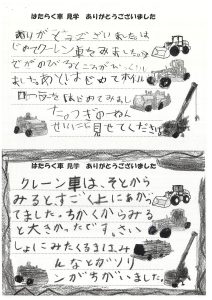 はたらく車 見学　ありがとうございました
ありがとうございました。は
じめてクレーン車をみました。
ぜがのびるところが
ました。あと、はじめてホイル
ローラーをはじめてみまし
た。
せいいに見せてくださ
はたらく車 見学　ありがとうございました
クレーン車は、そとから
みるとすごく上にあがっ
てました。ちかくからみる
と大きかったです。さい
しょにみたくるまは、み
んなとがソリ
ンがちがいました。